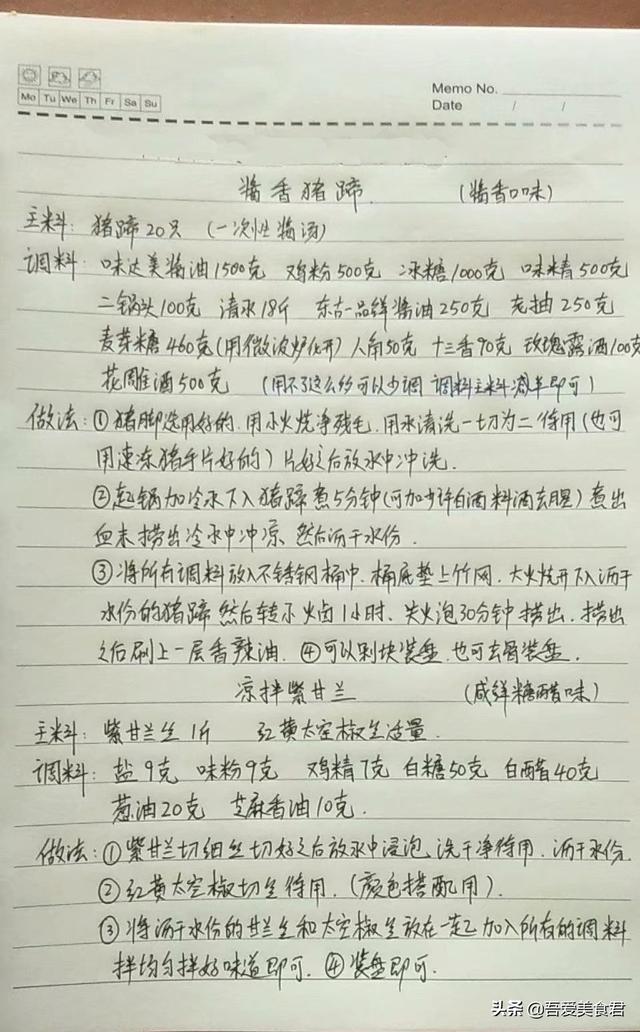 Mo Tu We Th Fr Sa Su
Memo No.
Date / /
酱香猪蹄. (酱香口味)
主料: 猪蹄20只 (一次性酱汤)
调料: 味达美酱油1500克 鸡粉500克 冰糖1000克 味精500克
二锅头100克 清水18斤 东古一品鲜酱油250克 老抽250克
麦芽糖460克(用微波炉化开) 八角50克 十三香90克 玫瑰露酒100克
花雕酒500克 (用不了这么多可以少调 调料主料减半即可)
做法: ①猪脚选用好的. 用小火烧净残毛. 用水清洗一切为二待用(也可
用速冻猪手片好的) 片好之后放水中冲洗.
②起锅加冷水下入猪蹄煮5分钟(可加少许白酒料酒去腥) 煮出
血末捞出冷水中冲凉 然后沥干水份.
③将所有调料放入不锈钢桶中. 桶底垫上竹网. 大火烧开下入沥干
水份的猪蹄然后转小火卤1小时. 关火泡30分钟捞出. 捞出
之后刷上一层香辣油. ④可以剁块装盘. 也可去骨装盘.
凉拌紫甘兰 (咸鲜糖醋味)
主料: 紫甘兰丝1斤 红黄太空椒丝适量.
调料: 盐9克 味粉9克 鸡精7克 白糖50克 白醋40克
葱油20克 芝麻香油10克.
做法: ①紫甘兰切细丝切好之后放水中浸泡. 洗干净待用. 沥干水份.
②红黄太空椒切丝待用. (颜色搭配用).
③将沥干水份的甘兰丝和太空椒丝放在一起加入所有的调料
拌均匀拌好味道即可. ④装盘即可.
头条 @吾爱美食君